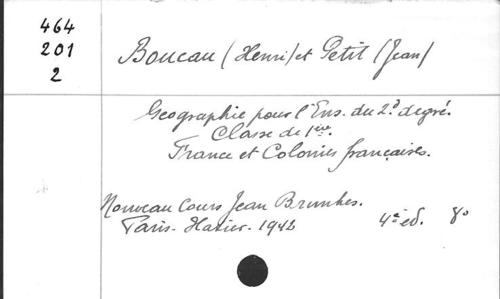 464
201
2
Boucau (Henri) et Petit (Jean)
Géographie pour l'Ens. du 2d degré.
Classe de 1ère.
France et Colonies françaises.
Nouveau Cours Jean Brunhes.
Paris - Hatier. 1942
4e éd. 8o